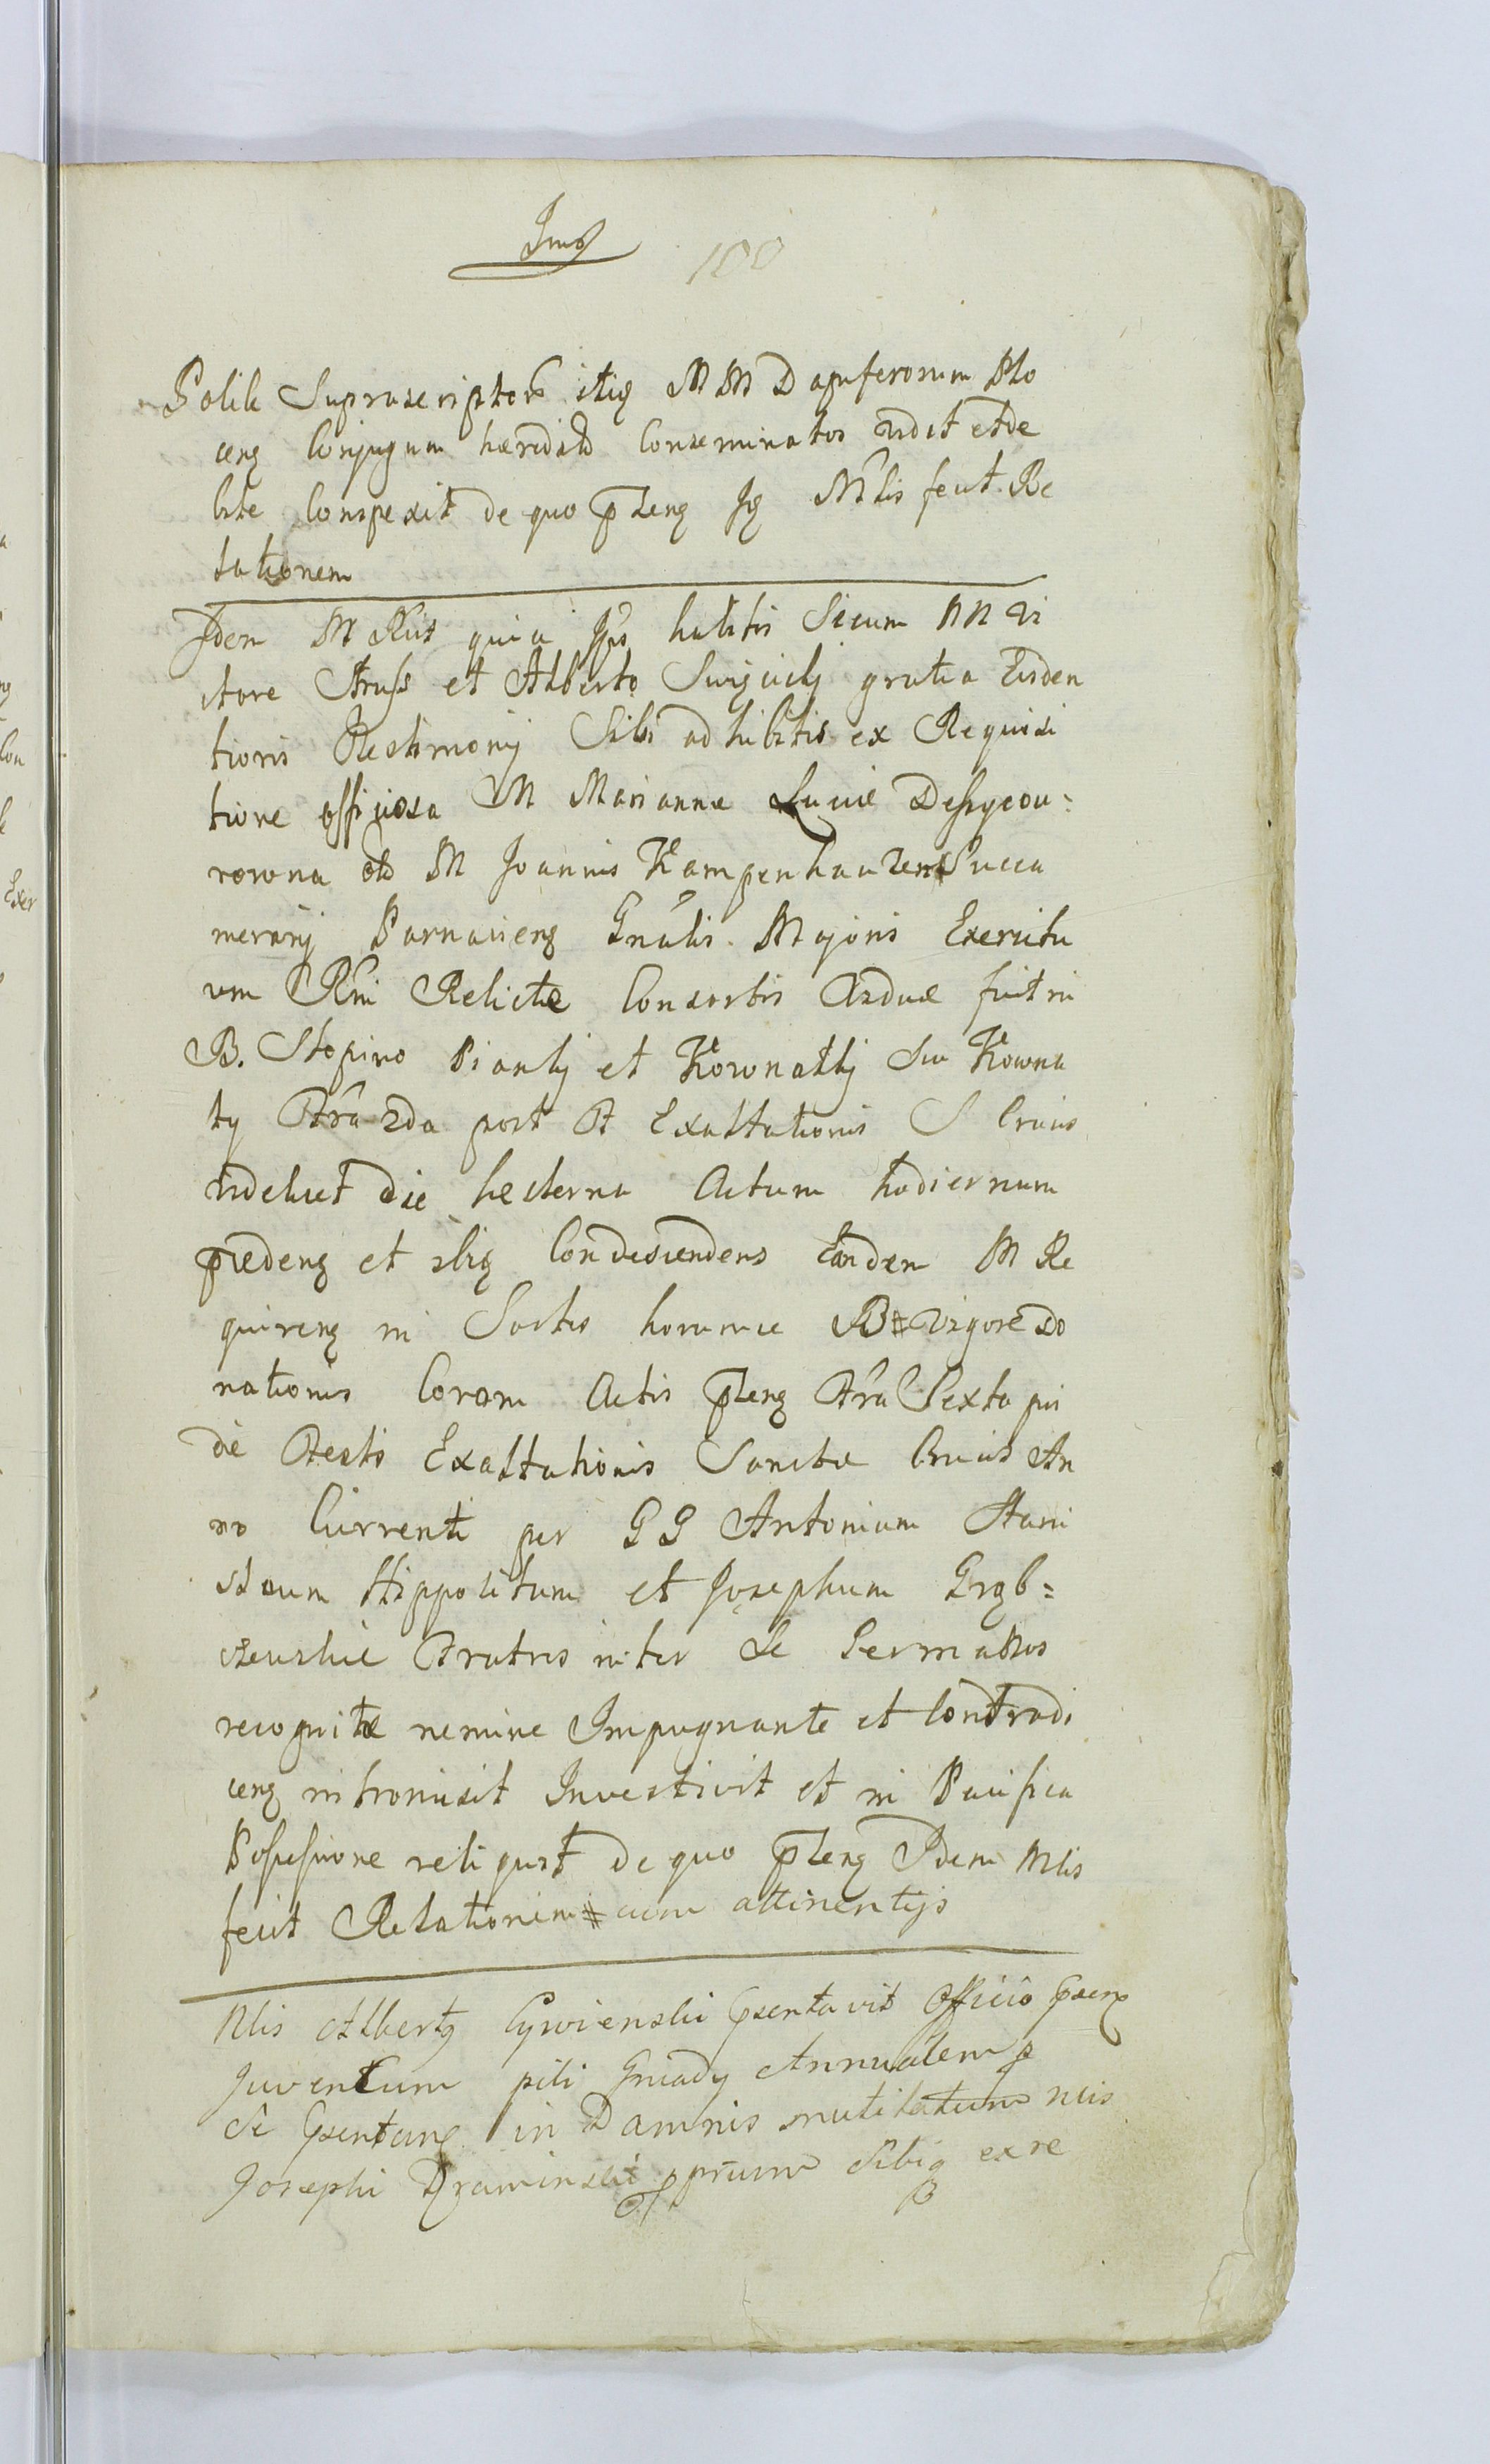 Imo 100
Polik Suprascriptor itiq MM Dapiferorum Plo
ceng Conjugum haeredit Conseminatos vidit et de
bite Conspexit de quo pleng Jq Mlis fecit Re
lationem
Idem M Rlis quia Jps habitis Secum NN Vi
ctore Struss et Alberto Swięcicky gratia Eviden
tioris Testimonij Sibi adhibitis ex Requisi
tione officiosa M Mariannae Luciae
rowna olo M Joannis Kampenhauzen Succa
merarij Parnavieng Gnalis Majoris Exercitu
um Rni Relictae Consortis Viduae fuit in
B. Stopino Pianky et Kownatky siu Kowna
ty Fria 2da post F Exaltationis S Crucis
videlicet die hesterna Actum hodiernum
praedeng et ibiq Condescendens Eandem M Re
quireng in Sortes horumce B # Vigore Do
nationis Coram Actis pleng Fria Sexta pri
die Festi Exaltationis Sanctae Crucis An
no Currenti per GG Antonium Stani
slaum Hippolitum et Josephum Grzb=
czewskie Fratres inter se Germanos
recognitae nemine Impugnante et Contradi
ceng intromisit Investivit et in Pacifica
Possessione reliquit de quo pleng Idem Mlis
fecit Relationem # cum attinentijs
Nlis Albertq Cywienski psentavit Officio psenq
Juvencum pili Gniady Annualem p
se psentang in Damnis mutilatum nlis
Josephi Draminskie pprium Sibiq ex re